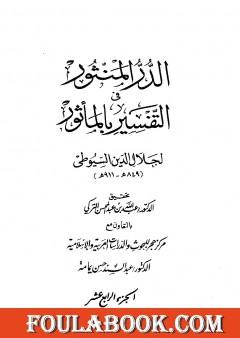 الدُّرُّ المَنْثُور
في
التَّفْسِيرِ بِالْمَأْثُور
لجلال الدين السيوطي
(٨٤٩هـ - ٩١١هـ)
تحقيق
الدكتور/عبد الله بن عبد المحسن التركي
بالتعاون مع
مركز هجر للبحوث والدراسات العربية والإسلامية
الدكتور/عبد السند حسن يمامة
الجزء الرابع عشر
FOULABOOK.COM